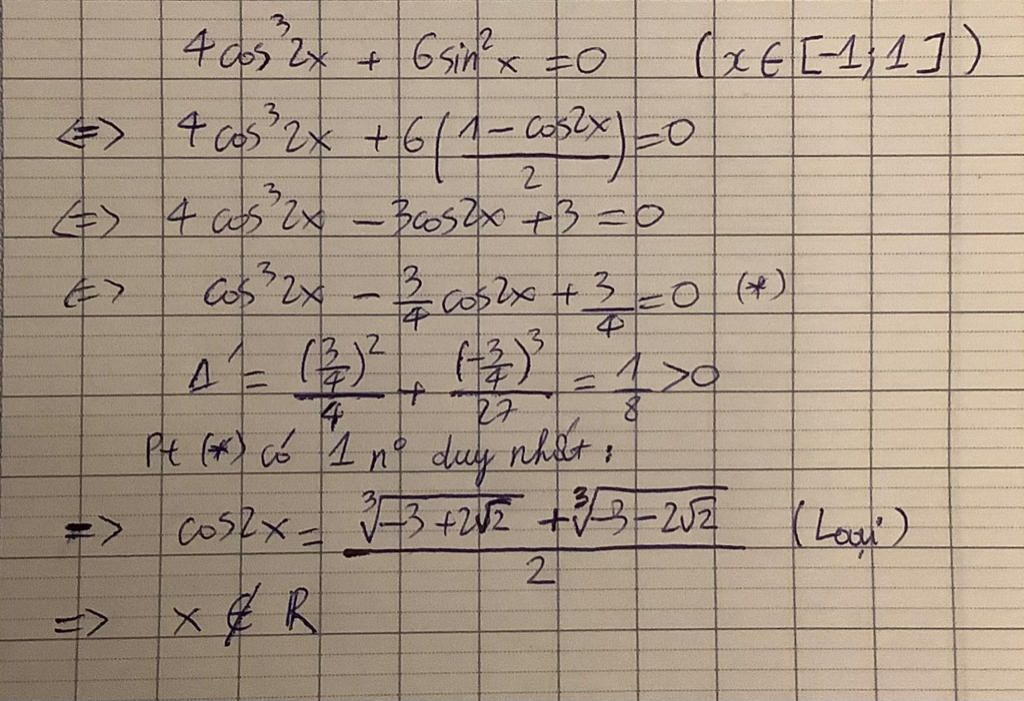 4cos³2x + 6sin²x = 0 (x ∈ [-1; 1])
<=> 4cos³2x + 6((1 - cos2x)/2) = 0
<=> 4cos³2x - 3cos2x + 3 = 0
<=> cos³2x - 3/4 cos2x + 3/4 = 0 (*)
Δ' = (3/4)²/4 + (-3/4)³/27 = 1/8 > 0
Pt (*) có 1 n° duy nhất:
=> cos2x = (∛(-3 + 2√2) + ∛(-3 - 2√2))/2 (Loại)
=> x ∉ R